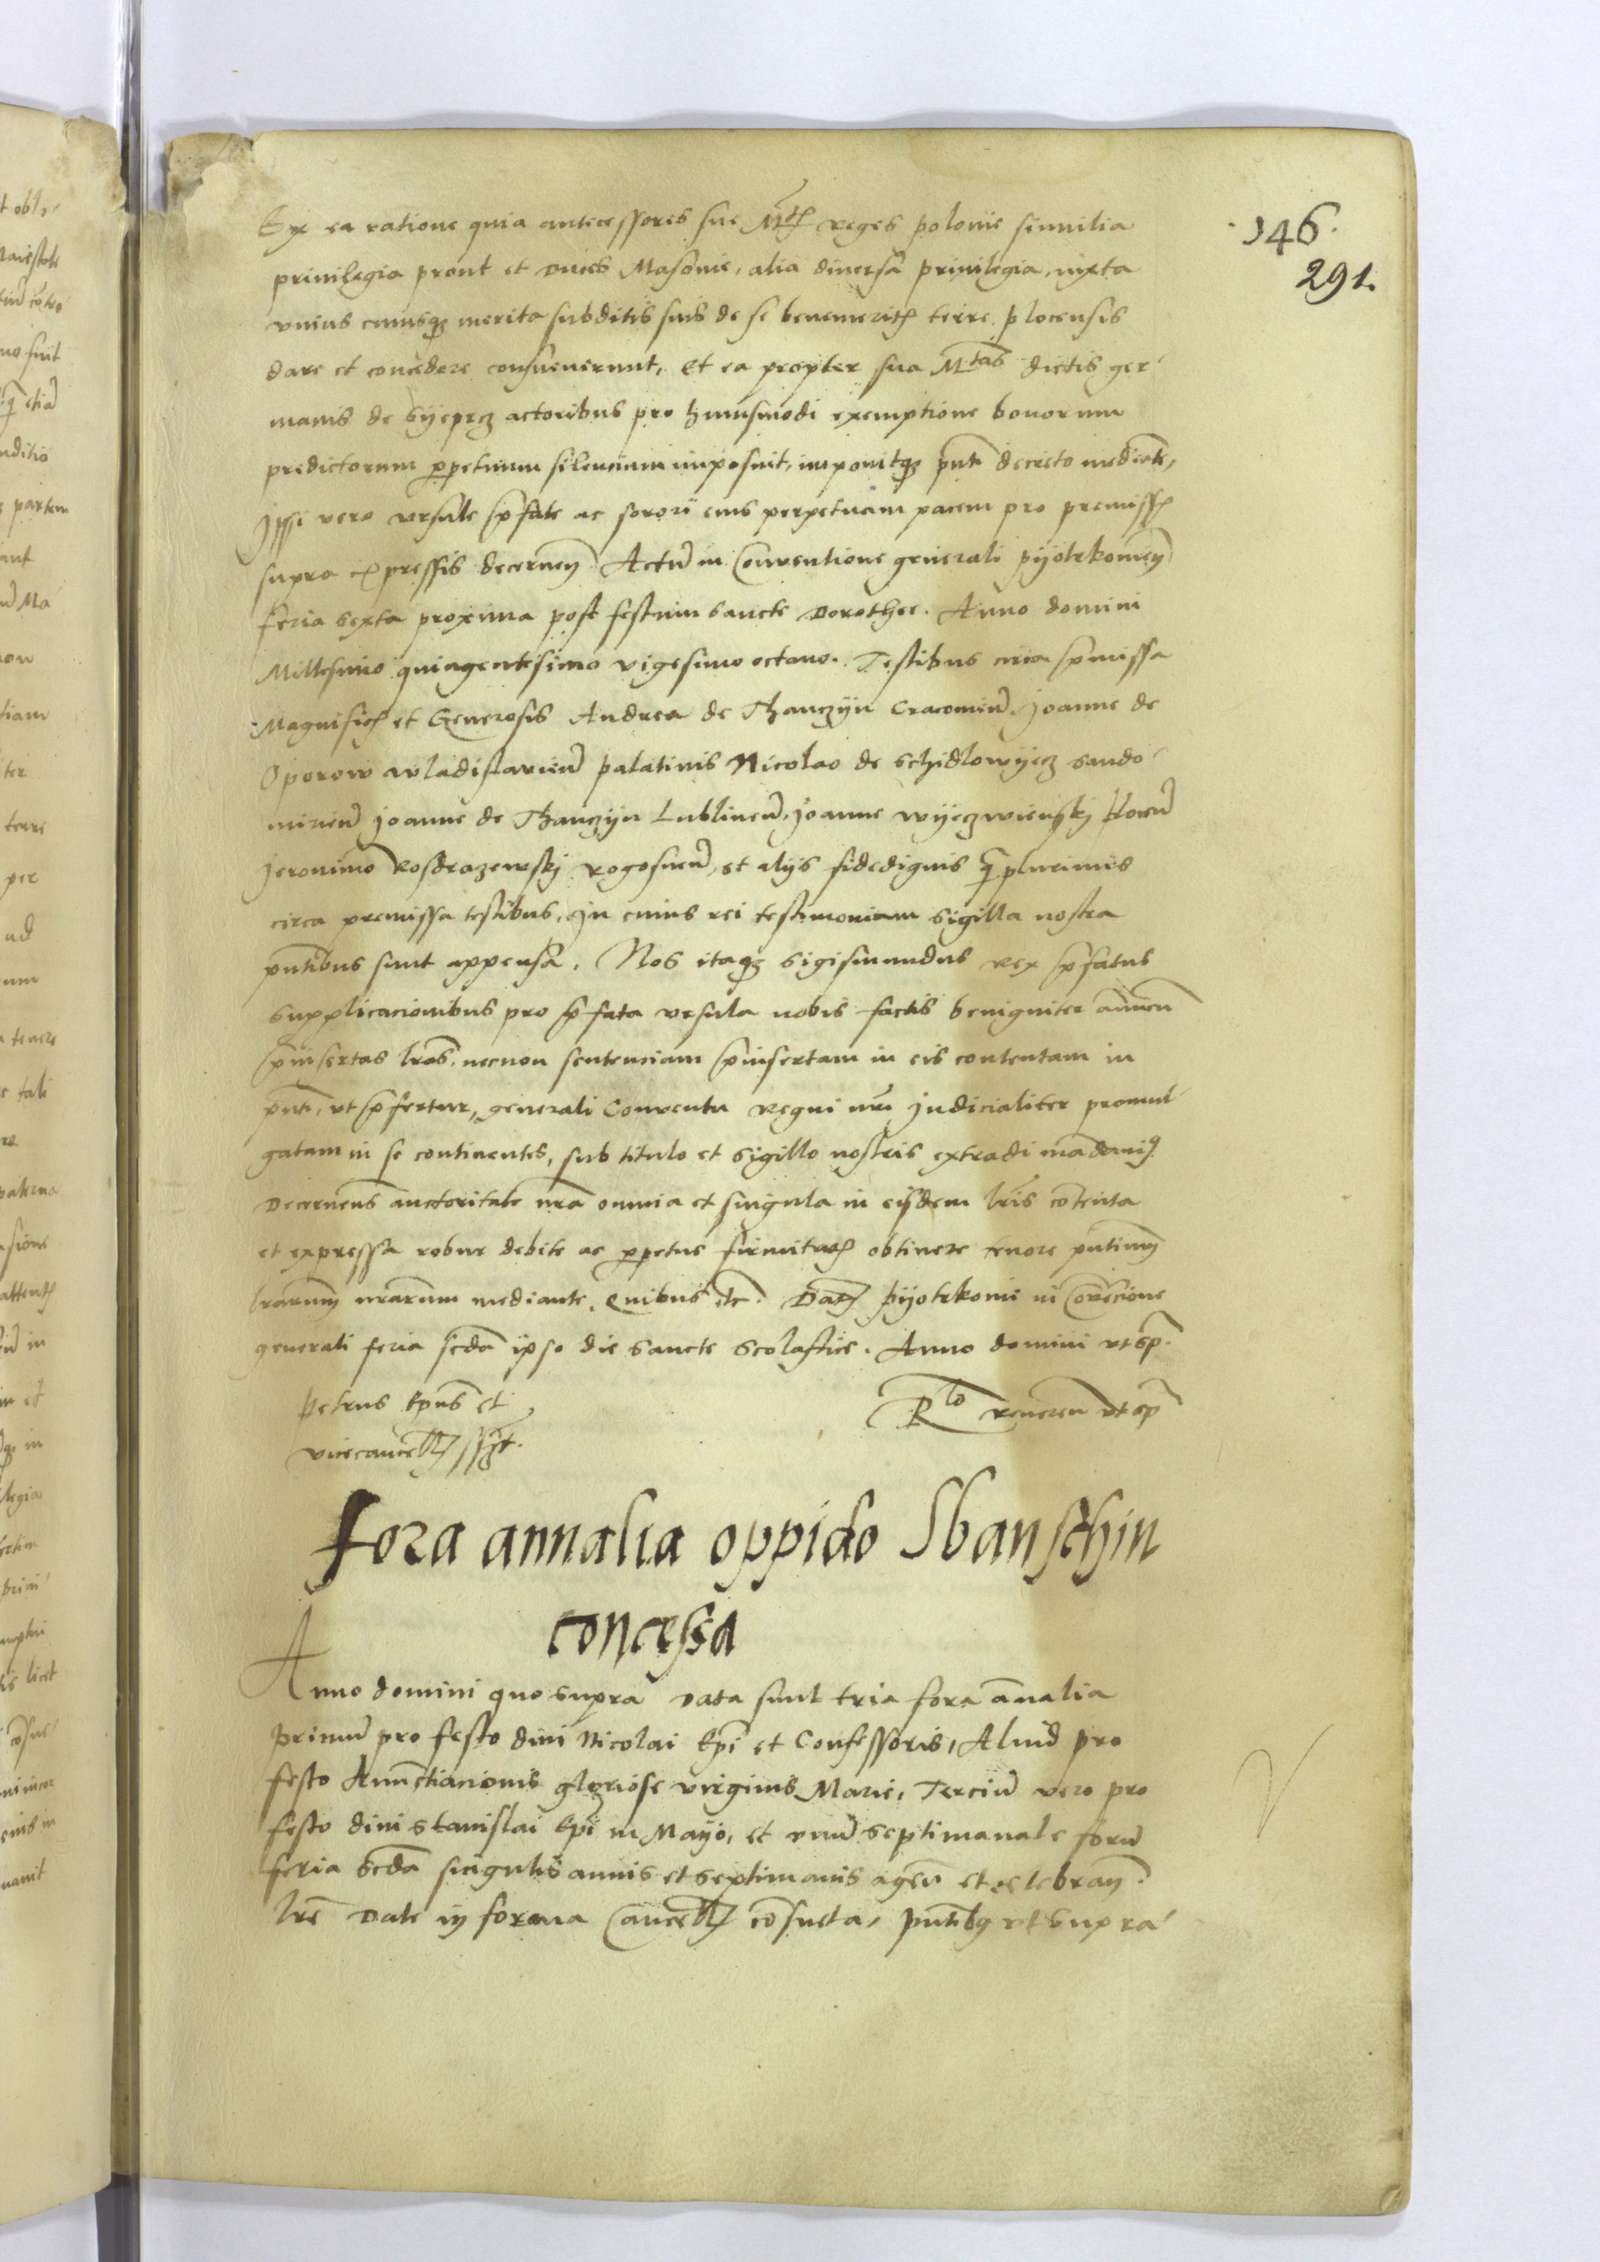 146.
291.
Ex ea ratione quia antecessores sue Mtis reges polonie similia
privilegia prout et duces Masovie, alia diversa privilegia, iuxta
unius cuiusque merita subditis suis de se benemeritis terre plocensis
dare et concedere consueverunt, Et ea propter sua Mtas dictis ger
manis de actoribus pro huiusmodi exemptione bonorum
predictorum perpetuum silencium imposuit, imponitque pnti decreto mediante,
Ipsi vero Ursule prefate ac sorori eius perpetuam pacem pro premissis
supra expressis decernen Actum in Conventione generali pyotrkovien
feria sexta proxima post festum sancte Dorothee. Anno domini
Millesimo quingentesimo vigesimo octavo. Testibus circa premissa
Magnificis et Generosis Andrea de Thanczyn Cracovien, Joanne de
Oporow wladislavien palatinis Nicolao de Schidlowyecz sando
mirien Joanne de Thanczyn Lublinen, Joanne wyeczwiensky plocen
Jeronimo Rosdrazewsky Rogosnen, et alijs fidedignis qplurimis
circa premissa testibus, In cuius rei testimonium sigilla nostra
pntibus sunt appensa. Nos itaque Sigismundus Rex prefatus
supplicacionibus pro prefata Ursula nobis factis benigniter annuen
preinsertas lras, necnon sentenciam preinsertam in eis contentam in
pnti, ut prefertur, generali Conventu Regni nri Judicialiter promul
gatam in se continentes, sub titulo et sigillo nostris extradi mandavimus
Decernens auctoritate nra omnia et singula in eisdem lris contenta
et expressa robur debite ac perpetue firmitatis obtinere tenore pntium
lrarum nrarum mediante, Quibus etc. Dat pyotrkovie in Convencione
generali feria scda ipso die sancte Scolastice. Anno domini ut sp.
Petrus Epus et
vicecancell sst.
Rlo reveren ut sp
Fora annalia oppido Sbanschin
concessa
Anno domini quo supra Data sunt tria fora annalia
Primum pro festo divi Nicolai Epi et Confessoris, Aliud pro
festo Annuntiacionis gloriose virginis Marie, Tercium vero pro
festo divi Stanislai Epi in Mayo, et unum septimanale forum
feria scda singulis annis et septimanis agen et celebran.
lre Date in forma Cancell consueta, pntibus ut supra